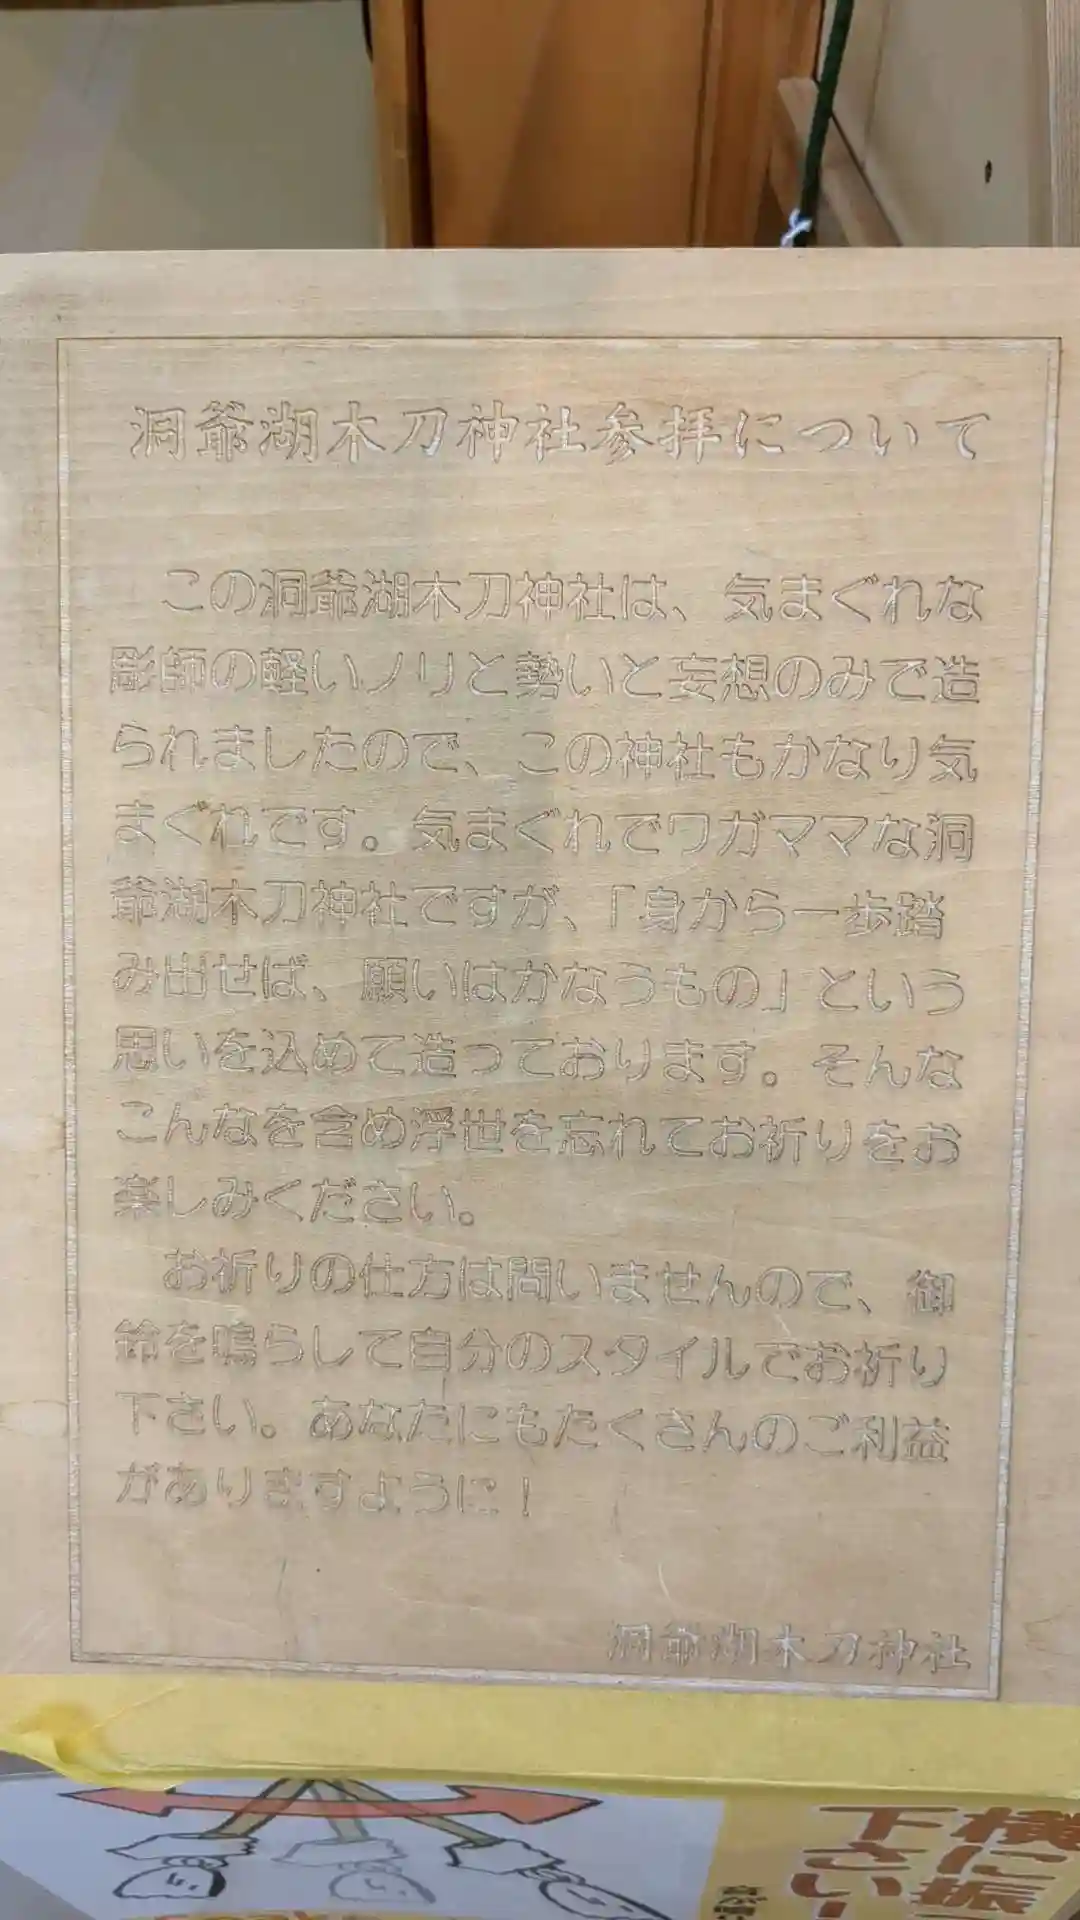 洞爺湖木刀神社参拝について
この洞爺湖木刀神社は、気まぐれな
彫師の軽いノリと勢いと妄想のみで造
られましたので、この神社もかなり気
まぐれです。気まぐれでワガママな洞
爺湖木刀神社ですが、「身から一歩踏
み出せば、願いはかなうもの」という
思いを込めて造っております。そんな
こんなを含め浮世を忘れてお祈りをお
楽しみください。
お祈りの仕方は問いませんので、御
鈴を鳴らして自分のスタイルでお祈り
下さい。あなたにもたくさんのご利益
がありますように！
洞爺湖木刀神社
横に振
下さい